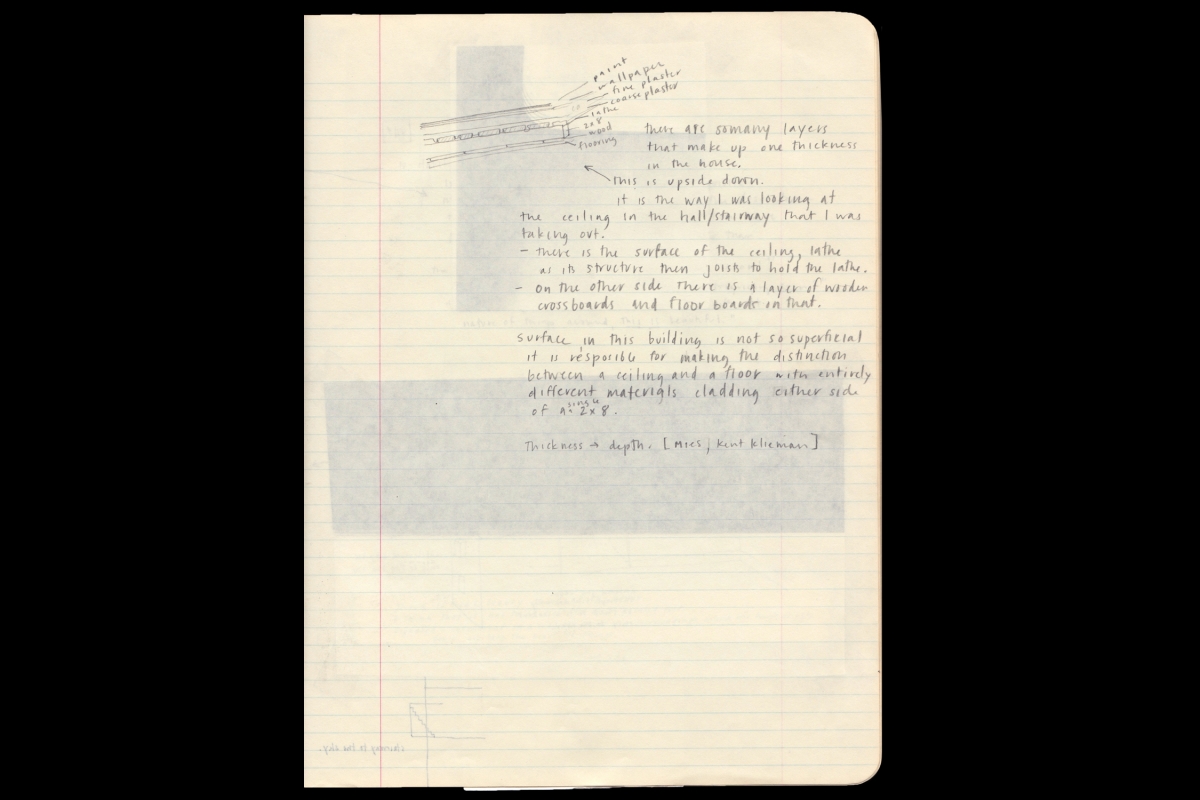 paint
wallpaper
fine plaster
coarse plaster
lathe
2x8
wood
flooring
there are so many layers
that make up one thickness
in the house.
this is upside down.
it is the way I was looking at
the ceiling in the hall/stairway that I was
taking out.
- there is the surface of the ceiling, lathe
as its structure then joists to hold the lathe.
- on the other side there is a layer of wooden
crossboards and floor boards on that.
surface in this building is not so superficial
it is resposible for making the distinction
between a ceiling and a floor with entirely
different materials cladding either side
of a single 2x8.
Thickness → depth. [Mies, Kent Klieman]